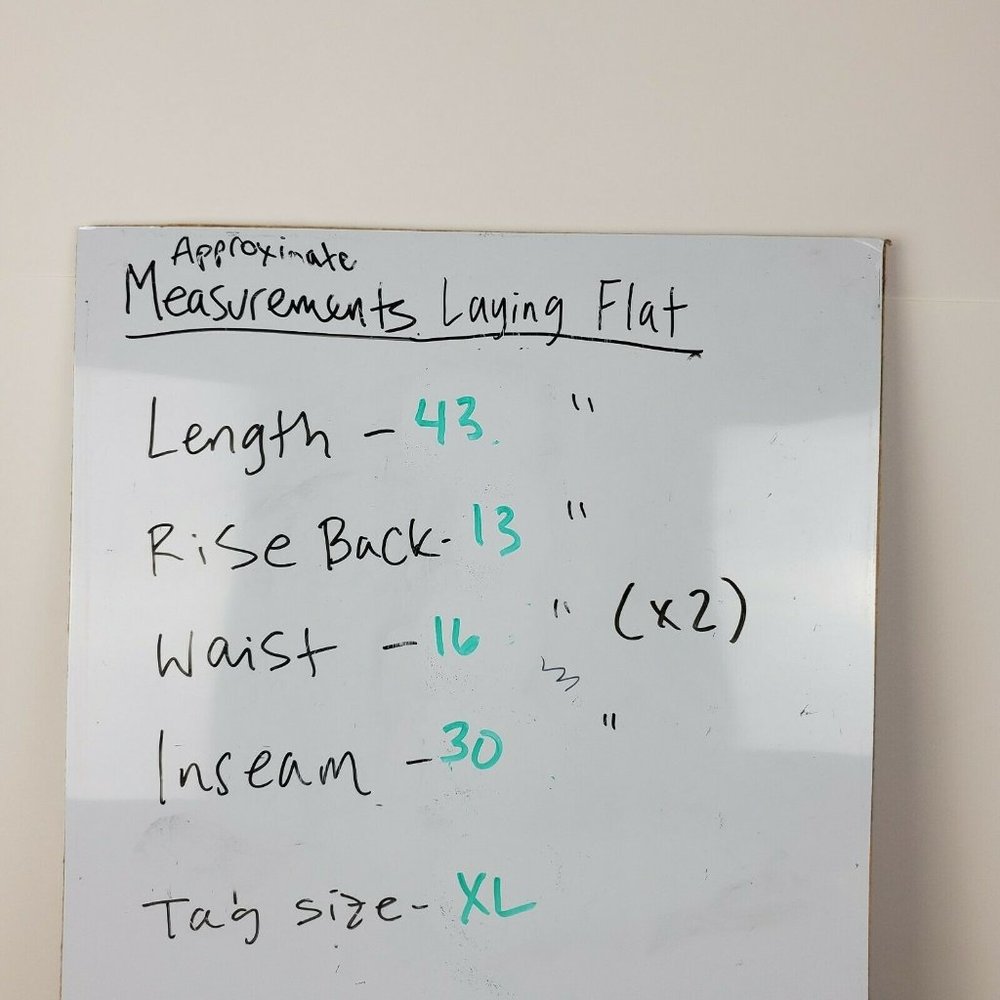 Approximate
Measurements Laying Flat
Length - 43 "
Rise Back - 13 "
Waist - 16 " (x2)
Inseam - 30 "
Tag size - XL